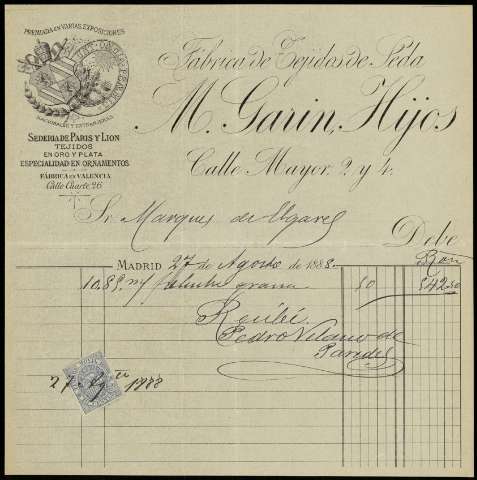 PREMIADA EN VARIAS EXPOSICIONES
NACIONALES Y EXTRANJERAS
SEDERIA DE PARIS Y LION
TEJIDOS
EN ORO Y PLATA
ESPECIALIDAD EN ORNAMENTOS
FÁBRICA EN VALENCIA
Calle Cuarte 26
Fábrica de Tejidos de Seda
M. Garin, Hijos
Calle Mayor, 2 y 4.
Sr. Marques de
Debe
MADRID 27 de Agosto de 1888.
10.85 m/ grana 50 542.50
Recibí
Pedro Velasco de
Paredes
27 Ag 1888